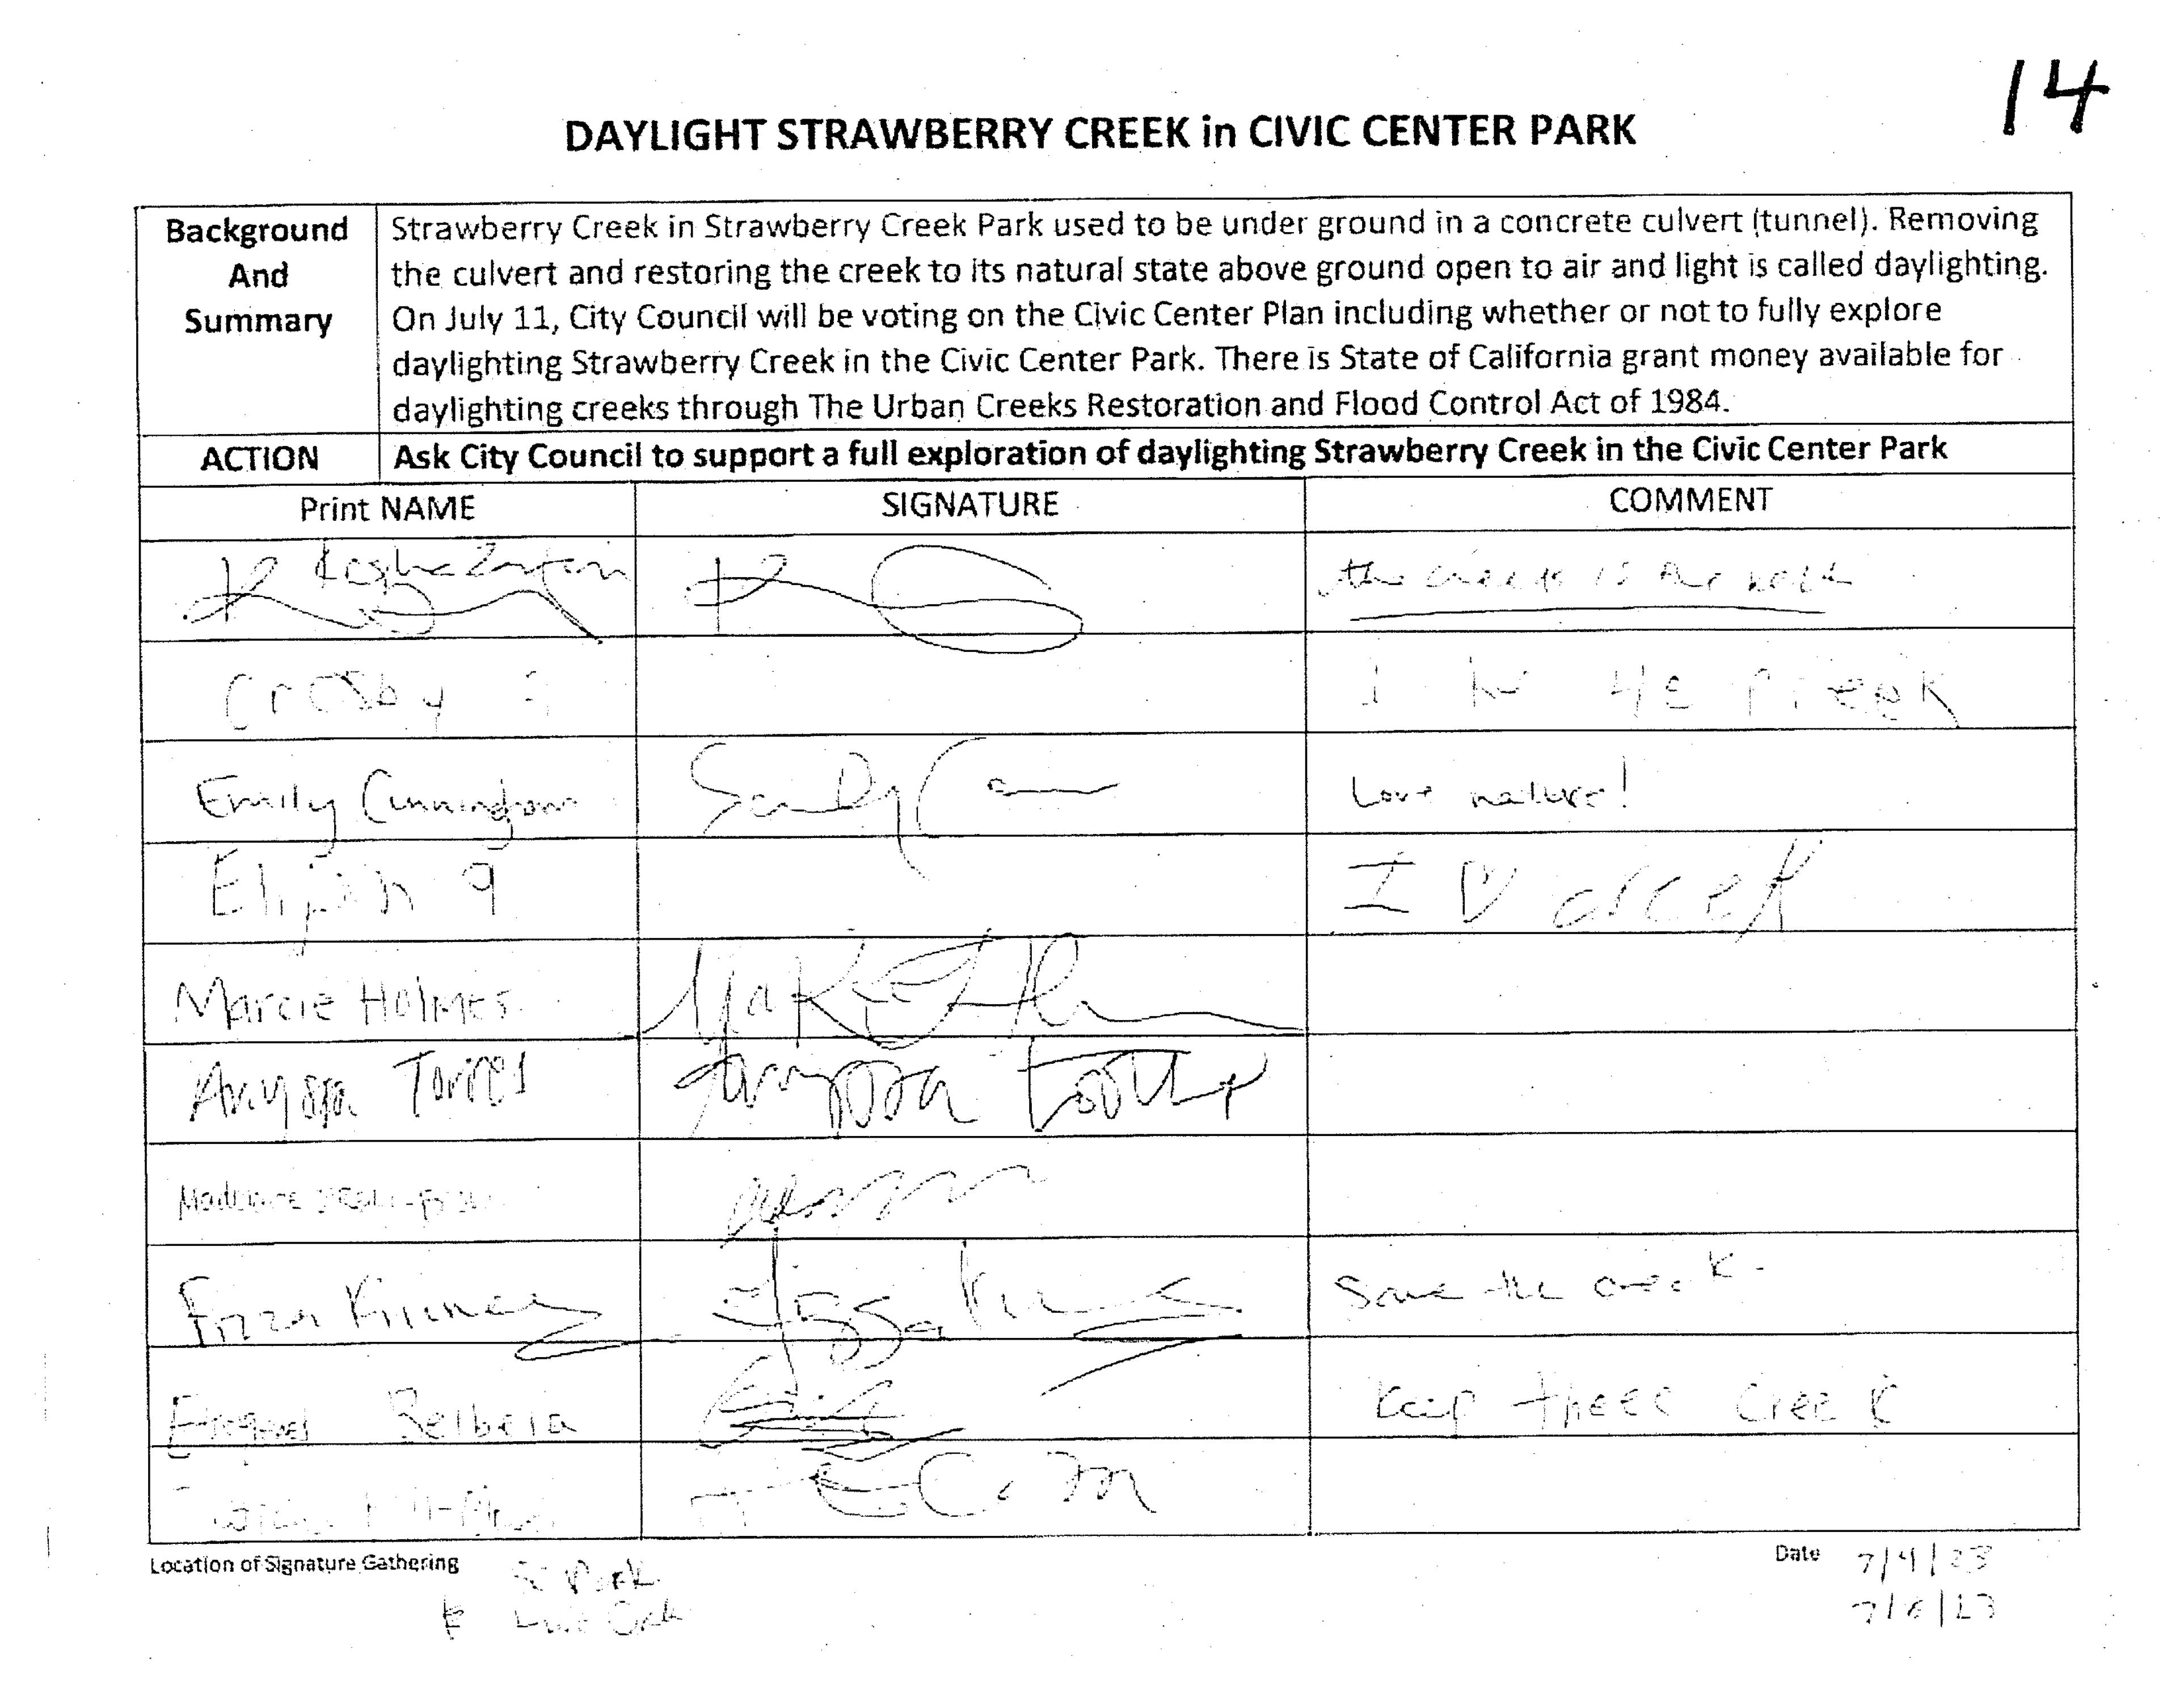 14
DAYLIGHT STRAWBERRY CREEK in CIVIC CENTER PARK
Background And Summary
Strawberry Creek in Strawberry Creek Park used to be under ground in a concrete culvert (tunnel). Removing
the culvert and restoring the creek to its natural state above ground open to air and light is called daylighting.
On July 11, City Council will be voting on the Civic Center Plan including whether or not to fully explore
daylighting Strawberry Creek in the Civic Center Park. There is State of California grant money available for
daylighting creeks through The Urban Creeks Restoration and Flood Control Act of 1984.
ACTION Ask City Council to support a full exploration of daylighting Strawberry Creek in the Civic Center Park
Print NAME SIGNATURE COMMENT
the creek is the
Crosby
Emily Cunningham Love nature!
Elijah 9 I
Marcie Holmes
Anyssa Torres
Frizza Kinney Save the creek.
Keep Creek
Location of Signature Gathering Date 7/4/23
Park
7/6/23